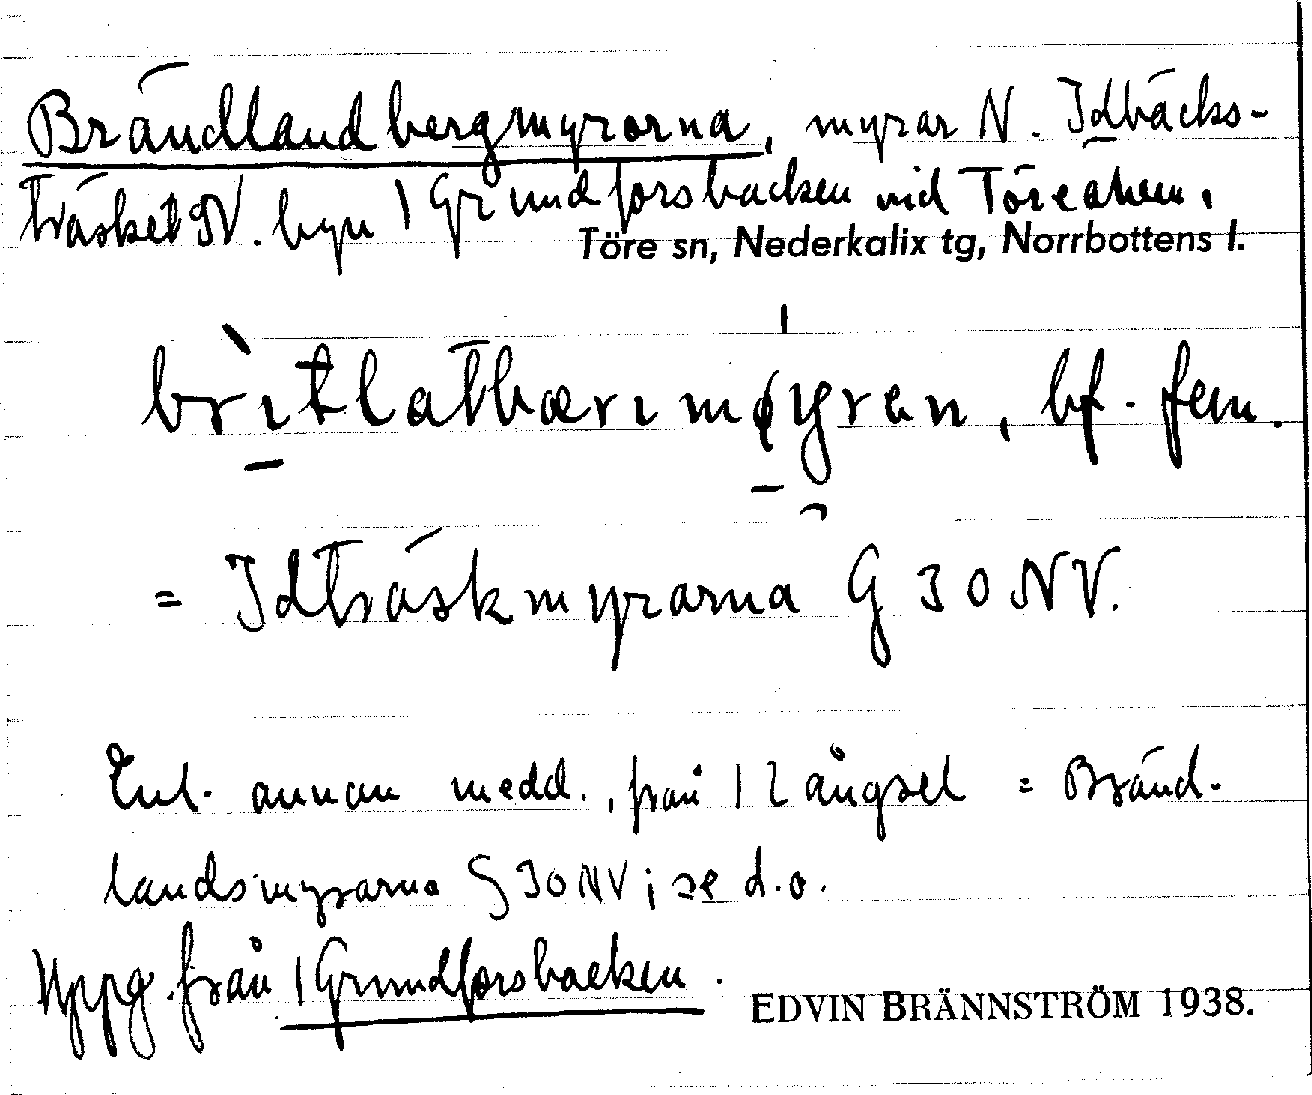 Brändlandbergmyrorna, myrar N. Idbäcks-
träsket N. byn 1 Grundforsbacken vid Töreälven.
Töre sn, Nederkalix tg, Norrbottens l.
= Idträskmyrarna G 30 NV.
Enl. annan medd., från 1 Långsel = Bränd-
landsmyrarna G 30 NV; se d.o.
Uppg. från 1 Grundforsbacken.
EDVIN BRÄNNSTRÖM 1938.